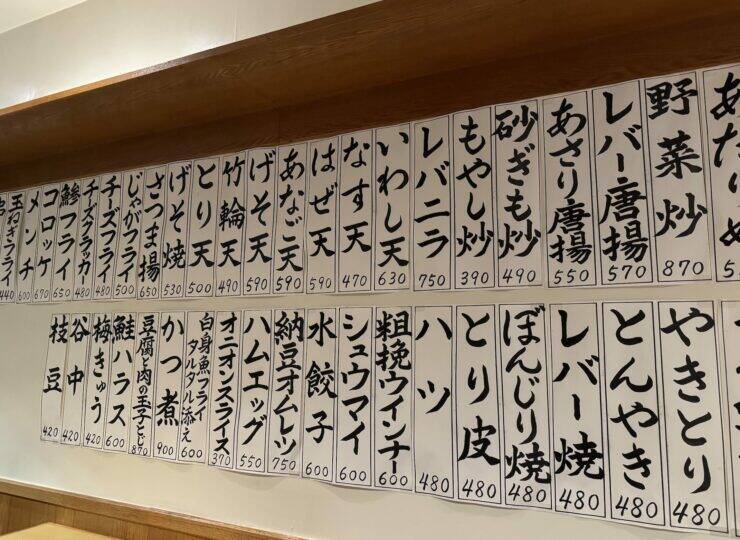 野菜炒 870
レバー唐揚 570
あさり唐揚 550
砂ぎも炒 490
もやし炒 390
レバニラ 750
いわし天 630
なす天 470
はぜ天 590
あなご天 590
げそ天 590
竹輪天 490
とり天 500
げそ焼 530
さつま揚 650
じゃがフライ 500
チーズフライ 480
チーズクラッカ 480
鯵フライ 650
コロッケ 670
メンチ 600
玉ねぎフライ 440
やきとり 480
とんやき 480
レバー焼 480
ぼんじり焼 480
とり皮 480
ハツ 480
粗挽ウインナー 600
シュウマイ 600
水餃子 600
納豆オムレツ 750
ハムエッグ 550
オニオンスライス 370
白身魚フライ
タルタル添え 600
かつ煮 900
豆腐と肉の玉子とじ 870
鮭ハラス 600
梅きゅう 420
谷中 420
枝豆 420